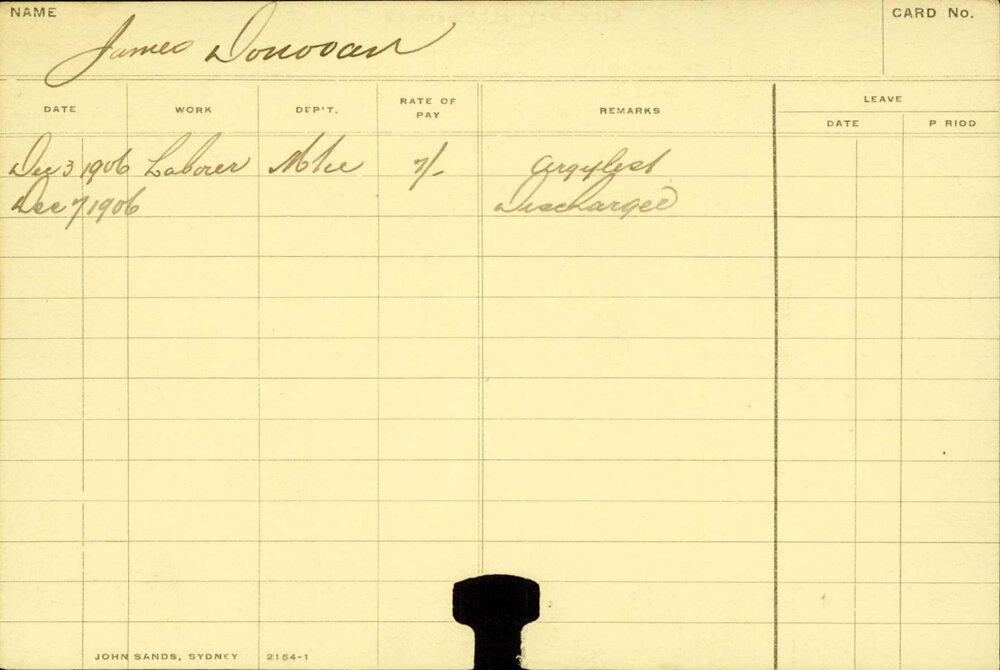 NAME
James Donovan
CARD No.
DATE WORK DEP'T. RATE OF PAY REMARKS LEAVE
DATE P RIOD
Dec 3 1906 Laborer Mtce 7/- Argyle st
Dec 7 1906 Discharged
JOHN SANDS, SYDNEY 2154-1